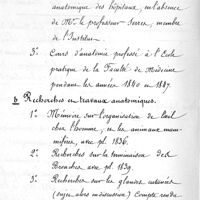 anatomique des hôpitaux, en l'absence
de Mr. le professeur Serres, membre
de l'Institut.
3° Cours d'anatomie professé à l'Ecole
pratique de la Faculté de Médecine
pendant les années 1840 en 1847.
b Recherches en travaux anatomiques.
1° Mémoire sur l'organisation de l'œil
chez l'homme, en les animaux mam-
mifères, avec pl. 1836.
2° Recherches sur la terminaison des
Bronches, avec pl. 1839.
3° Recherches sur les glandes cutanées
(sujet alors in discussion) Compte rendu